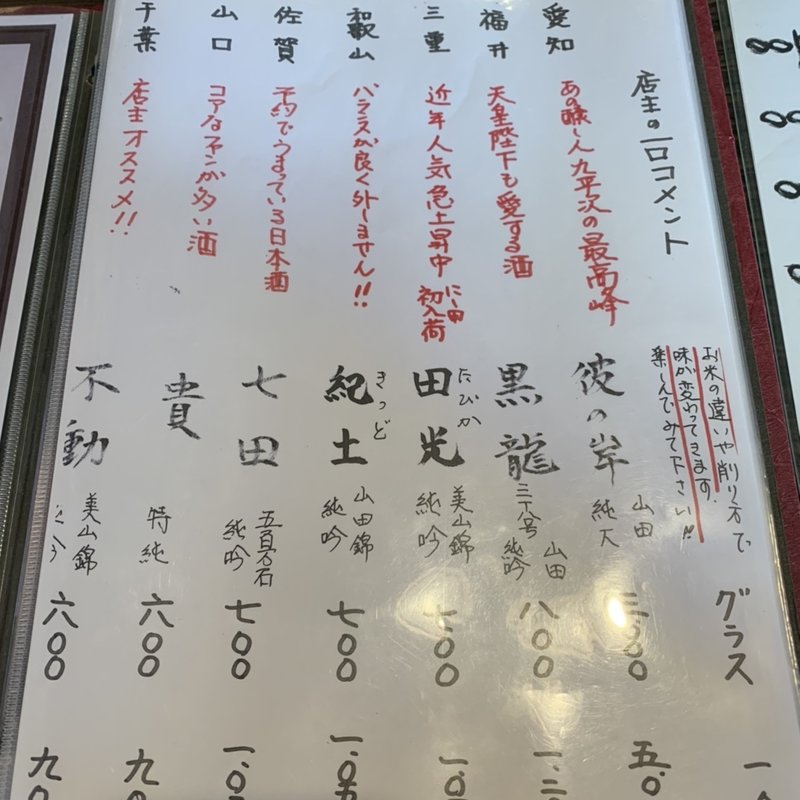 店主の一口コメント
お米の違いや削り方で
味が変わってきます。
楽しんでみて下さい!!
グラス
愛知
あの醸し人九平次の最高峰
彼の岸
山田
純大
福井
天皇陛下も愛する酒
黒龍
山田
純吟
八〇〇
三重
近年人気急上昇中
初入荷
田光
たびか
美山錦
純吟
七〇〇
和歌山
バランスが良く外しません!!
紀土
きっど
山田錦
純吟
七〇〇
佐賀
予約でうまっている日本酒
七田
五百万石
純吟
七〇〇
山口
コアなファンが多い酒
貴
特純
六〇〇
千葉
店主オススメ!!
不動
美山錦
六〇〇